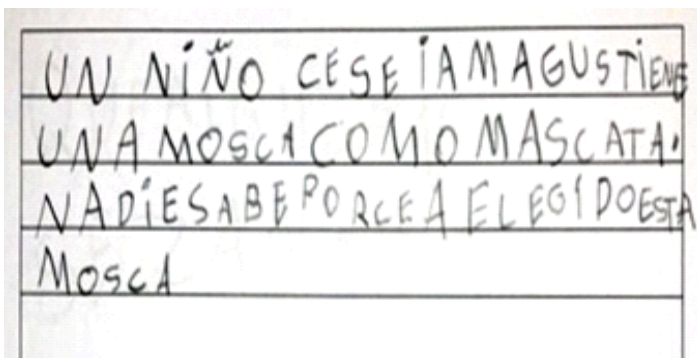 UN NIÑO CESE iAMAGUSTiENE
UNA MOSCA COMO MASCATA.
NADiESABE PORCE A ELEGIDOESTA
MOSCA